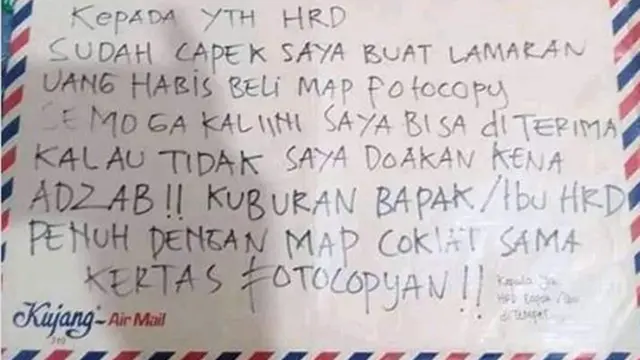 KEPADA YTH HRD
SUDAH CAPEK SAYA BUAT LAMARAN
UANG HABIS BELI MAP FOTOCOPY
SEMOGA KALI INI SAYA BISA DITERIMA
KALAU TIDAK SAYA DOAKAN KENA
ADZAB!! KUBURAN BAPAK/Ibu HRD
PENUH DENGAN MAP COKLAT SAMA
KERTAS FOTOCOPYAN!!
Kepada Yth
HRD Bapak/Ibu
di tempat
Kujang - Air Mail